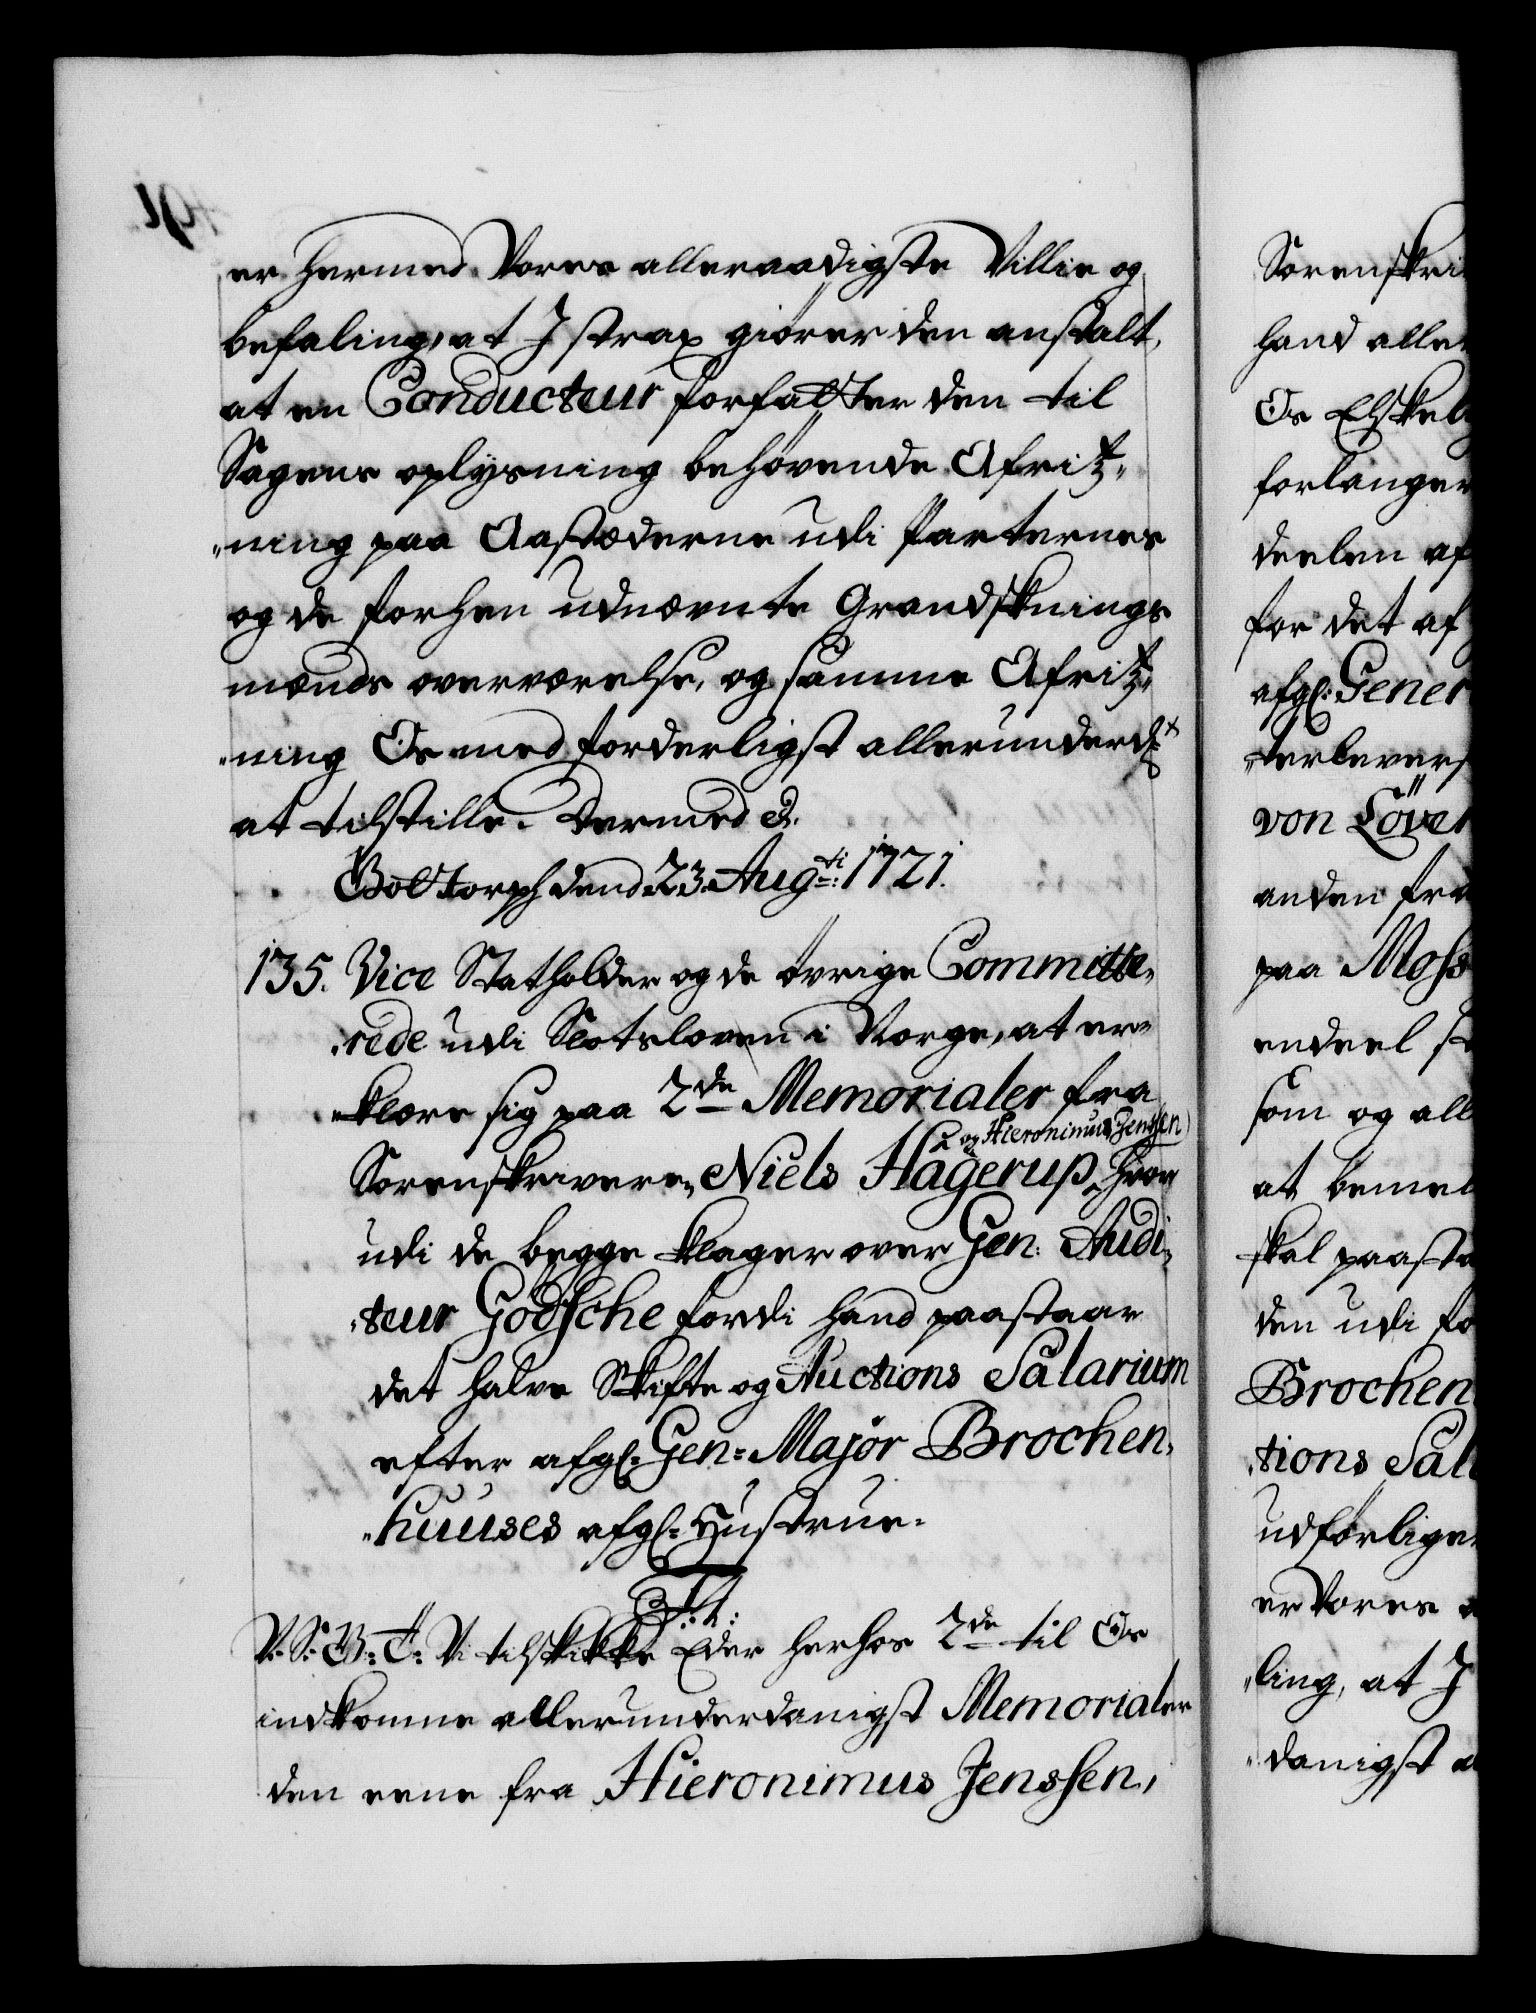 er hermed Vores allernaadigste Villie og
befaling, at I strax giører den anstalt,
at en Conducteur forfatter den til
Sagens oplysning behøvende Afritz-
"ning paa Aastæderne udi Parternes
og de forhen udnævnte Grandsknings
mænds overværelse, og samme Afritz-
"ning Os med forderligst allerunderd:
at tilstille. Dermed &.
Gottorph dend 23. Aug:ti 1721.
135. Vice Statholder og de øvrige Committe-
"rede udi Slotsloven i Norge, at er-
"klære sig paa 2de Memorialer fra
og Hieronimus Jenssen
Sorenskrivere, Niels Hagerup, hvor
udi de begge klager over Gen: Audi-
"teur Godsche fordi hand paastaar
det halve Skifte og Auctions Salarium
efter afgl: Gen: Major Brochen-
"huuses afgl: Hustrue.
F. 4:
V. S. G. T. Vi tilskikke Eder herhos 2de til Os
indkomne allerunderdanigst Memorialer
den eene fra Hieronimus Jenssen,
Sorenskri
hand aller
Os Elskel
forlanger
deelen af
for det af
afgl: Gener
"terlevers
von Løver
anden fra
paa Moss
endeel
som og all
at bemel
skal paasta
den udi fo
Brochen
"tions Sal
udførlige
er Vores a
"ling, at I
"danigst a